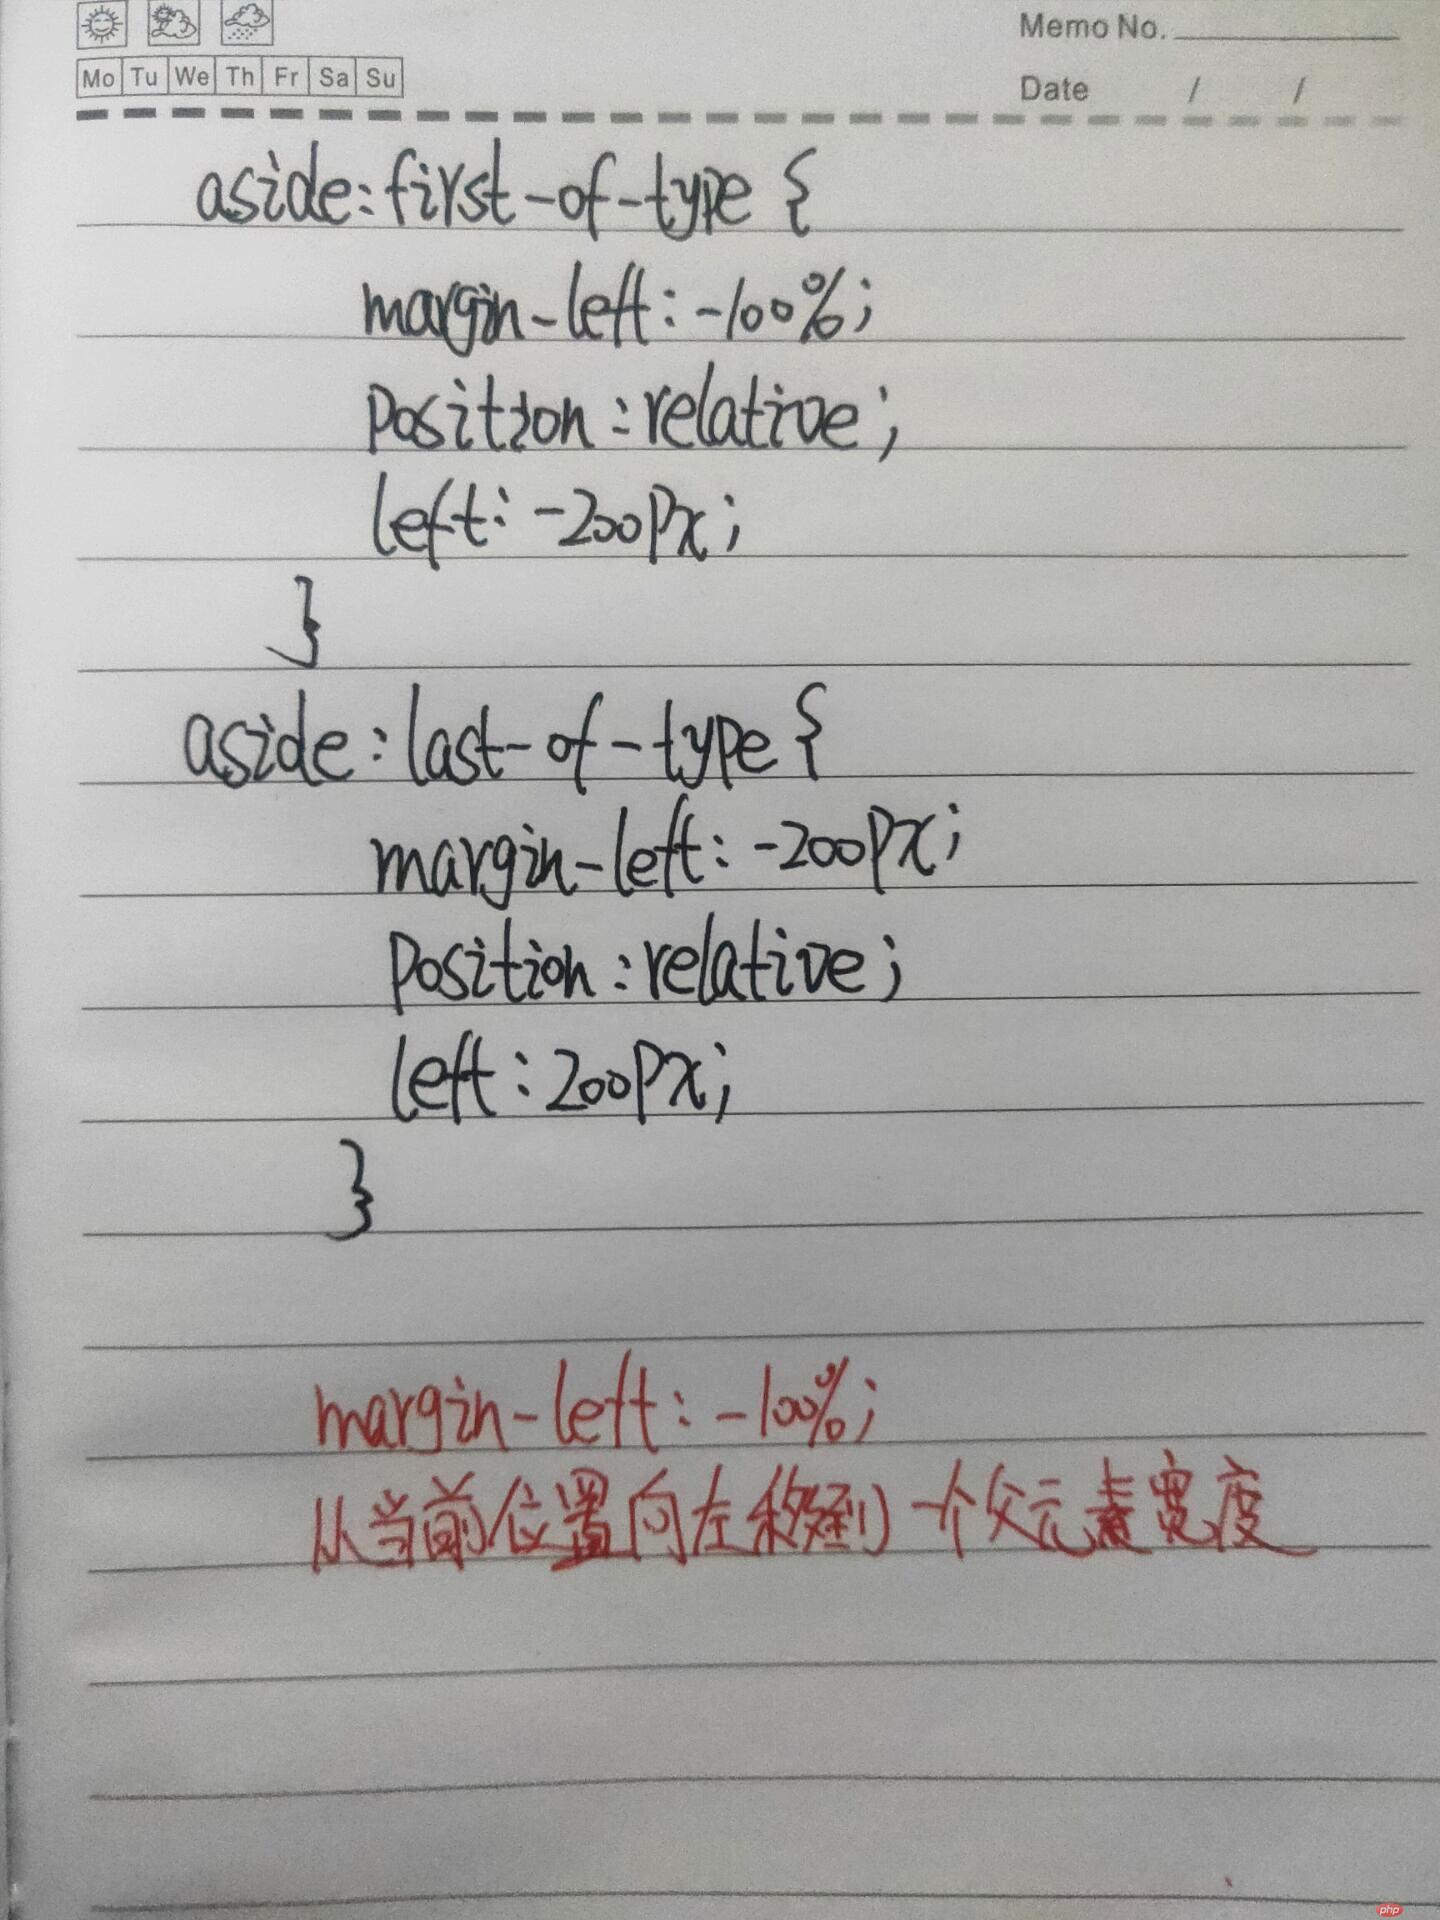 Memo No.
Mo Tu We Th Fr Sa Su
Date / /
aside:first-of-type {
margin-left: -100%;
Position:relative;
left: -200Px;
}
aside:last-of-type {
margin-left: -200Px;
Position:relative;
left:200Px;
}
margin-left: -100%;
从当前位置向左移到一个父元素宽度
php